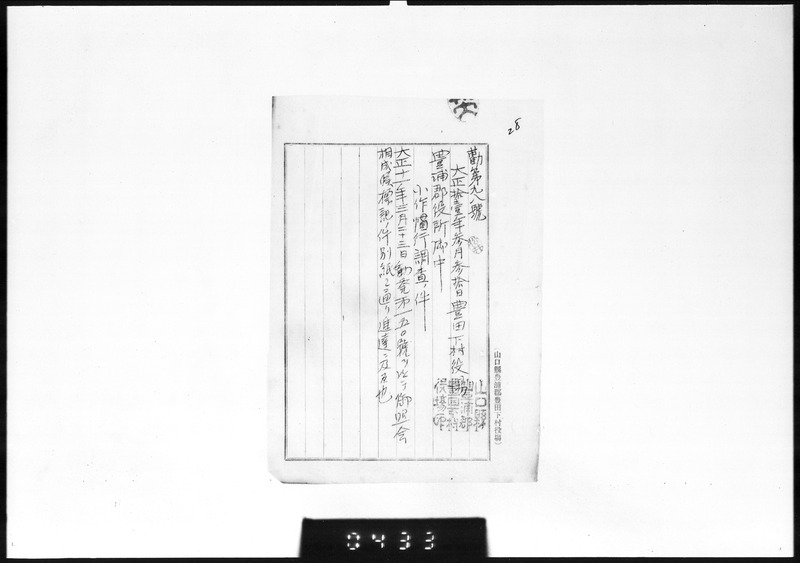 28
勸第九八號
大正拾壹年参月参拾日 豊田下村役場
山口縣
豊浦郡
豊田下村
役場印
豊浦郡役所御中
小作慣行調査ノ件
大正十一年三月二十三日勧発第一五〇號ヲ以テ御照会
相成候標記ノ件別紙之通リ進達ニ及候也
山口縣豊浦郡豊田下村役場
0433